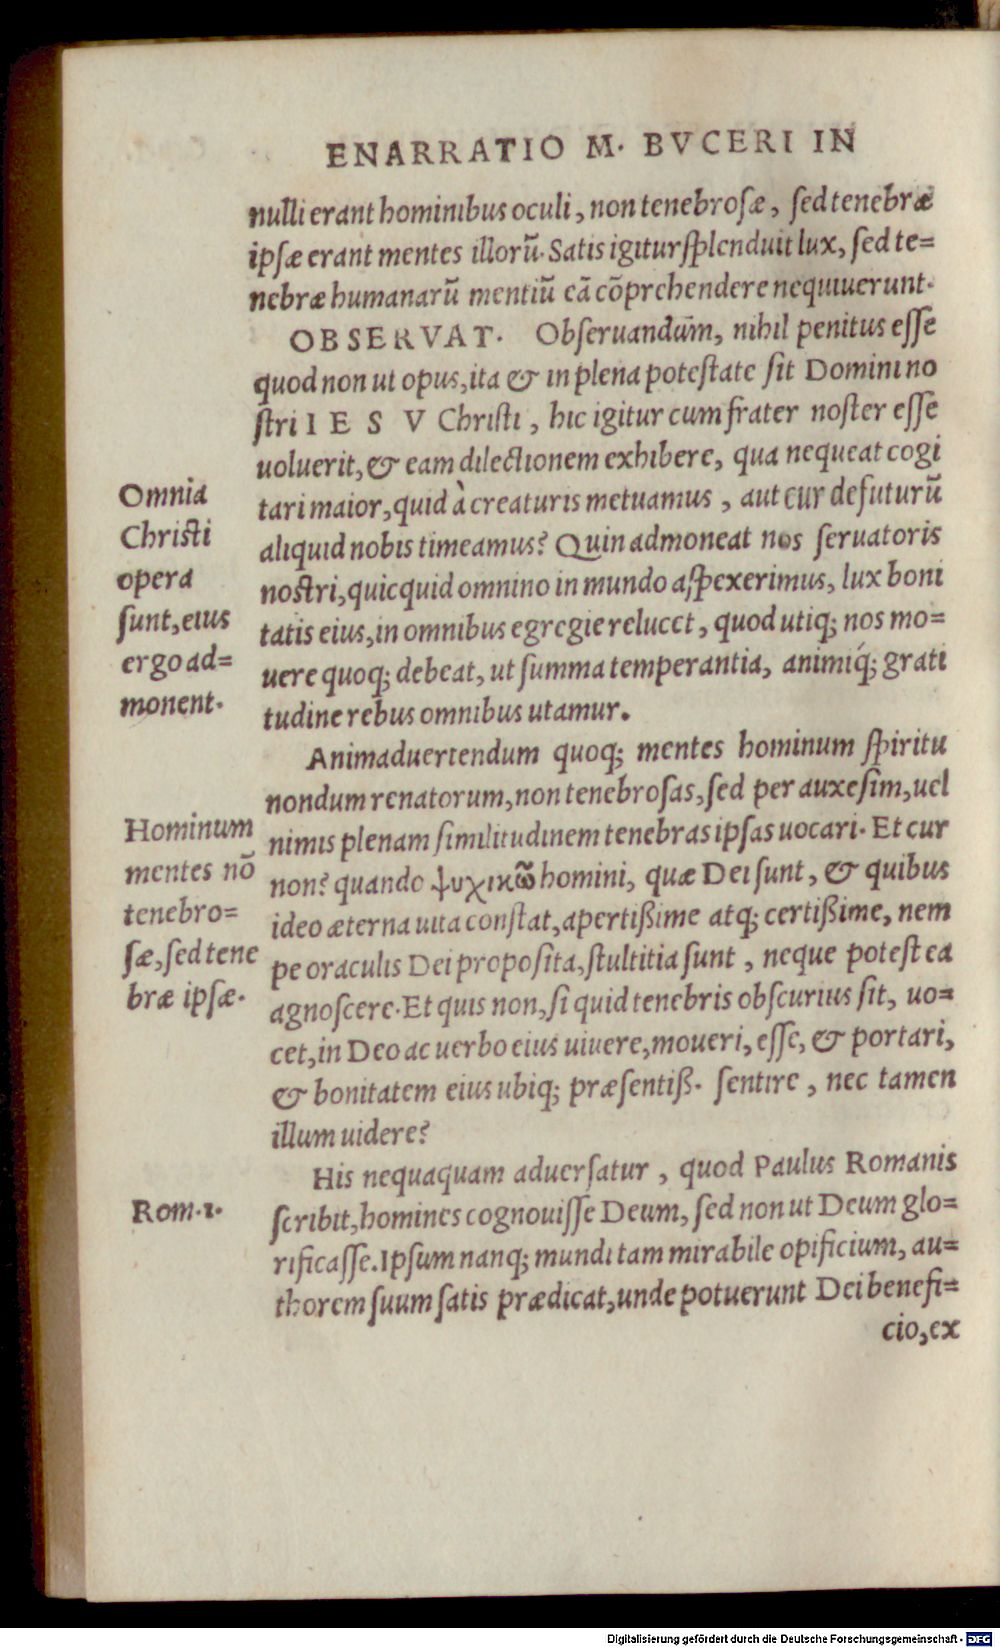 ENARRATIO M. BVCERI IN
nulli erant hominibus oculi, non tenebrosæ, sed tenebræ
ipsæ erant mentes illorũ. Satis igitur splenduit lux, sed te=
nebræ humanarũ mentiũ eã cõprehendere nequiuerunt.
OBSERVAT. Obseruandum, nihil penitus esse
quod non ut opus, ita & in plena potestate sit Domini no
stri I E S V Christi, hic igitur cum frater noster esse
uoluerit, & eam dilectionem exhibere, qua nequeat cogi
tari maior, quid à creaturis metuamus, aut cur defuturũ
aliquid nobis timeamus? Quin admoneat nos seruatoris
nostri, quicquid omnino in mundo aspexerimus, lux boni
tatis eius, in omnibus egregie relucet, quod utiq; nos mo=
uere quoq; debeat, ut summa temperantia, animiq́; grati
tudine rebus omnibus utamur.
Omnia
Christi
opera
sunt, eius
ergo ad=
monent.
Animaduertendum quoq; mentes hominum spiritu
nondum renatorum, non tenebrosas, sed per auxesim, uel
nimis plenam similitudinem tenebras ipsas uocari. Et cur
non? quando ψυχικῶ homini, quæ Dei sunt, & quibus
ideo æterna uita constat, apertißime atq; certißime, nem
pe oraculis Dei proposita, stultitia sunt, neque potest ea
agnoscere. Et quis non, si quid tenebris obscurius sit, uo=
cet, in Deo ac uerbo eius uiuere, moueri, esse, & portari,
& bonitatem eius ubiq; præsentiß. sentire, nec tamen
illum uidere?
Hominum
mentes nõ
tenebro=
sæ, sed tene
bræ ipsæ.
His nequaquam aduersatur, quod Paulus Romanis
scribit, homines cognouisse Deum, sed non ut Deum glo=
rificasse. Ipsum nanq; mundi tam mirabile opificium, au=
thorem suum satis prædicat, unde potuerunt Dei benefi=
cio, ex
Rom. 1.
Digitalisierung gefördert durch die Deutsche Forschungsgemeinschaft - DFG